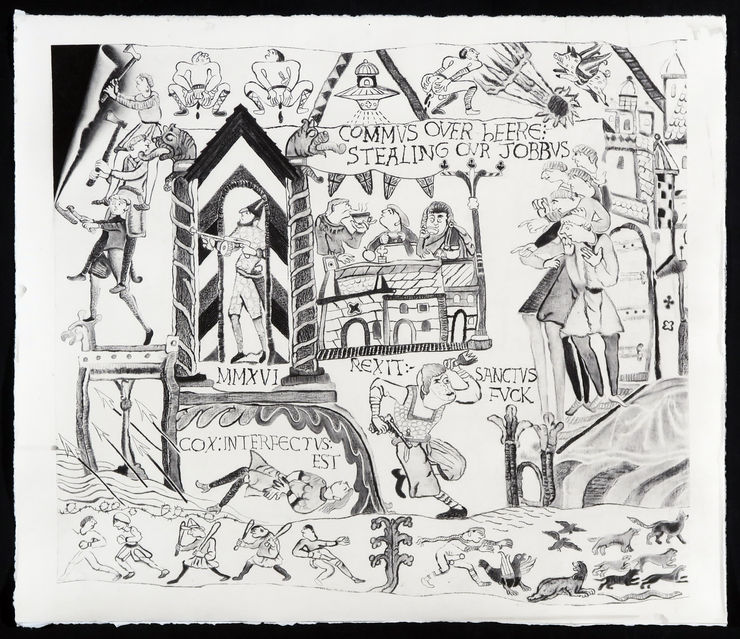 COMMVS OVER HEERE:
STEALING OVR JOBBVS
MMXVI
REXIT:-
SANCTVS
FVCK
COX:INTERFECTVS:
EST